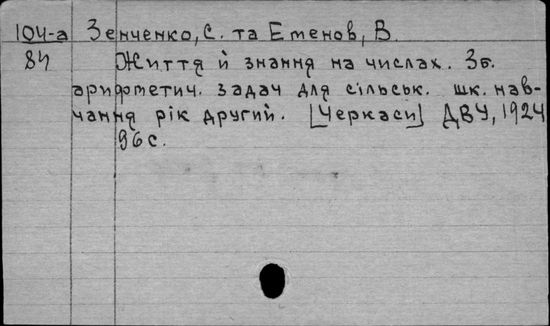 104-а Зенченко, С. та Еменов, В.
84 Життя й знання на числах. Зб.
аритметич. задач для сільськ. шк. нав-
чання рік другий. [Черкаси] ДВУ, 1924
96 с.